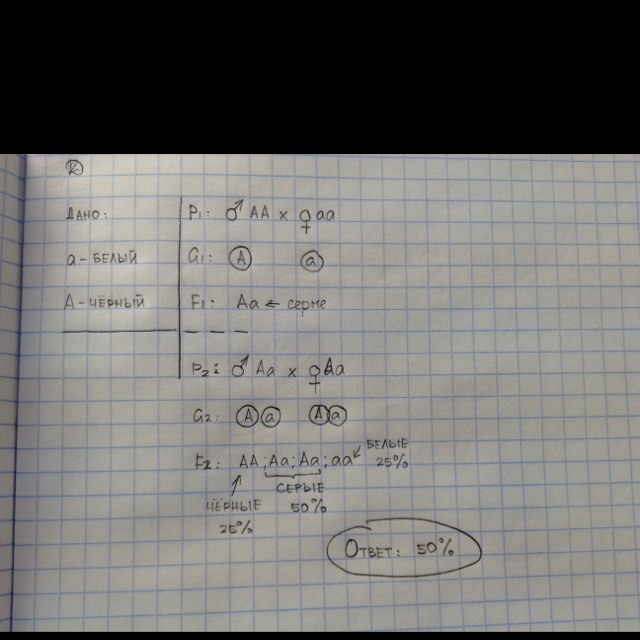 ДАНО:
а - БЕЛЫЙ
А - ЧЁРНЫЙ
P1: ♂ AA x ♀ aa
G1: A a
F1: Aa ← серые
P2: ♂ Aa x ♀ Aa
G2: A a A a
F2: AA; Aa; Aa; aa
БЕЛЫЕ
25%
СЕРЫЕ
50%
ЧЁРНЫЕ
25%
ОТВЕТ: 50%